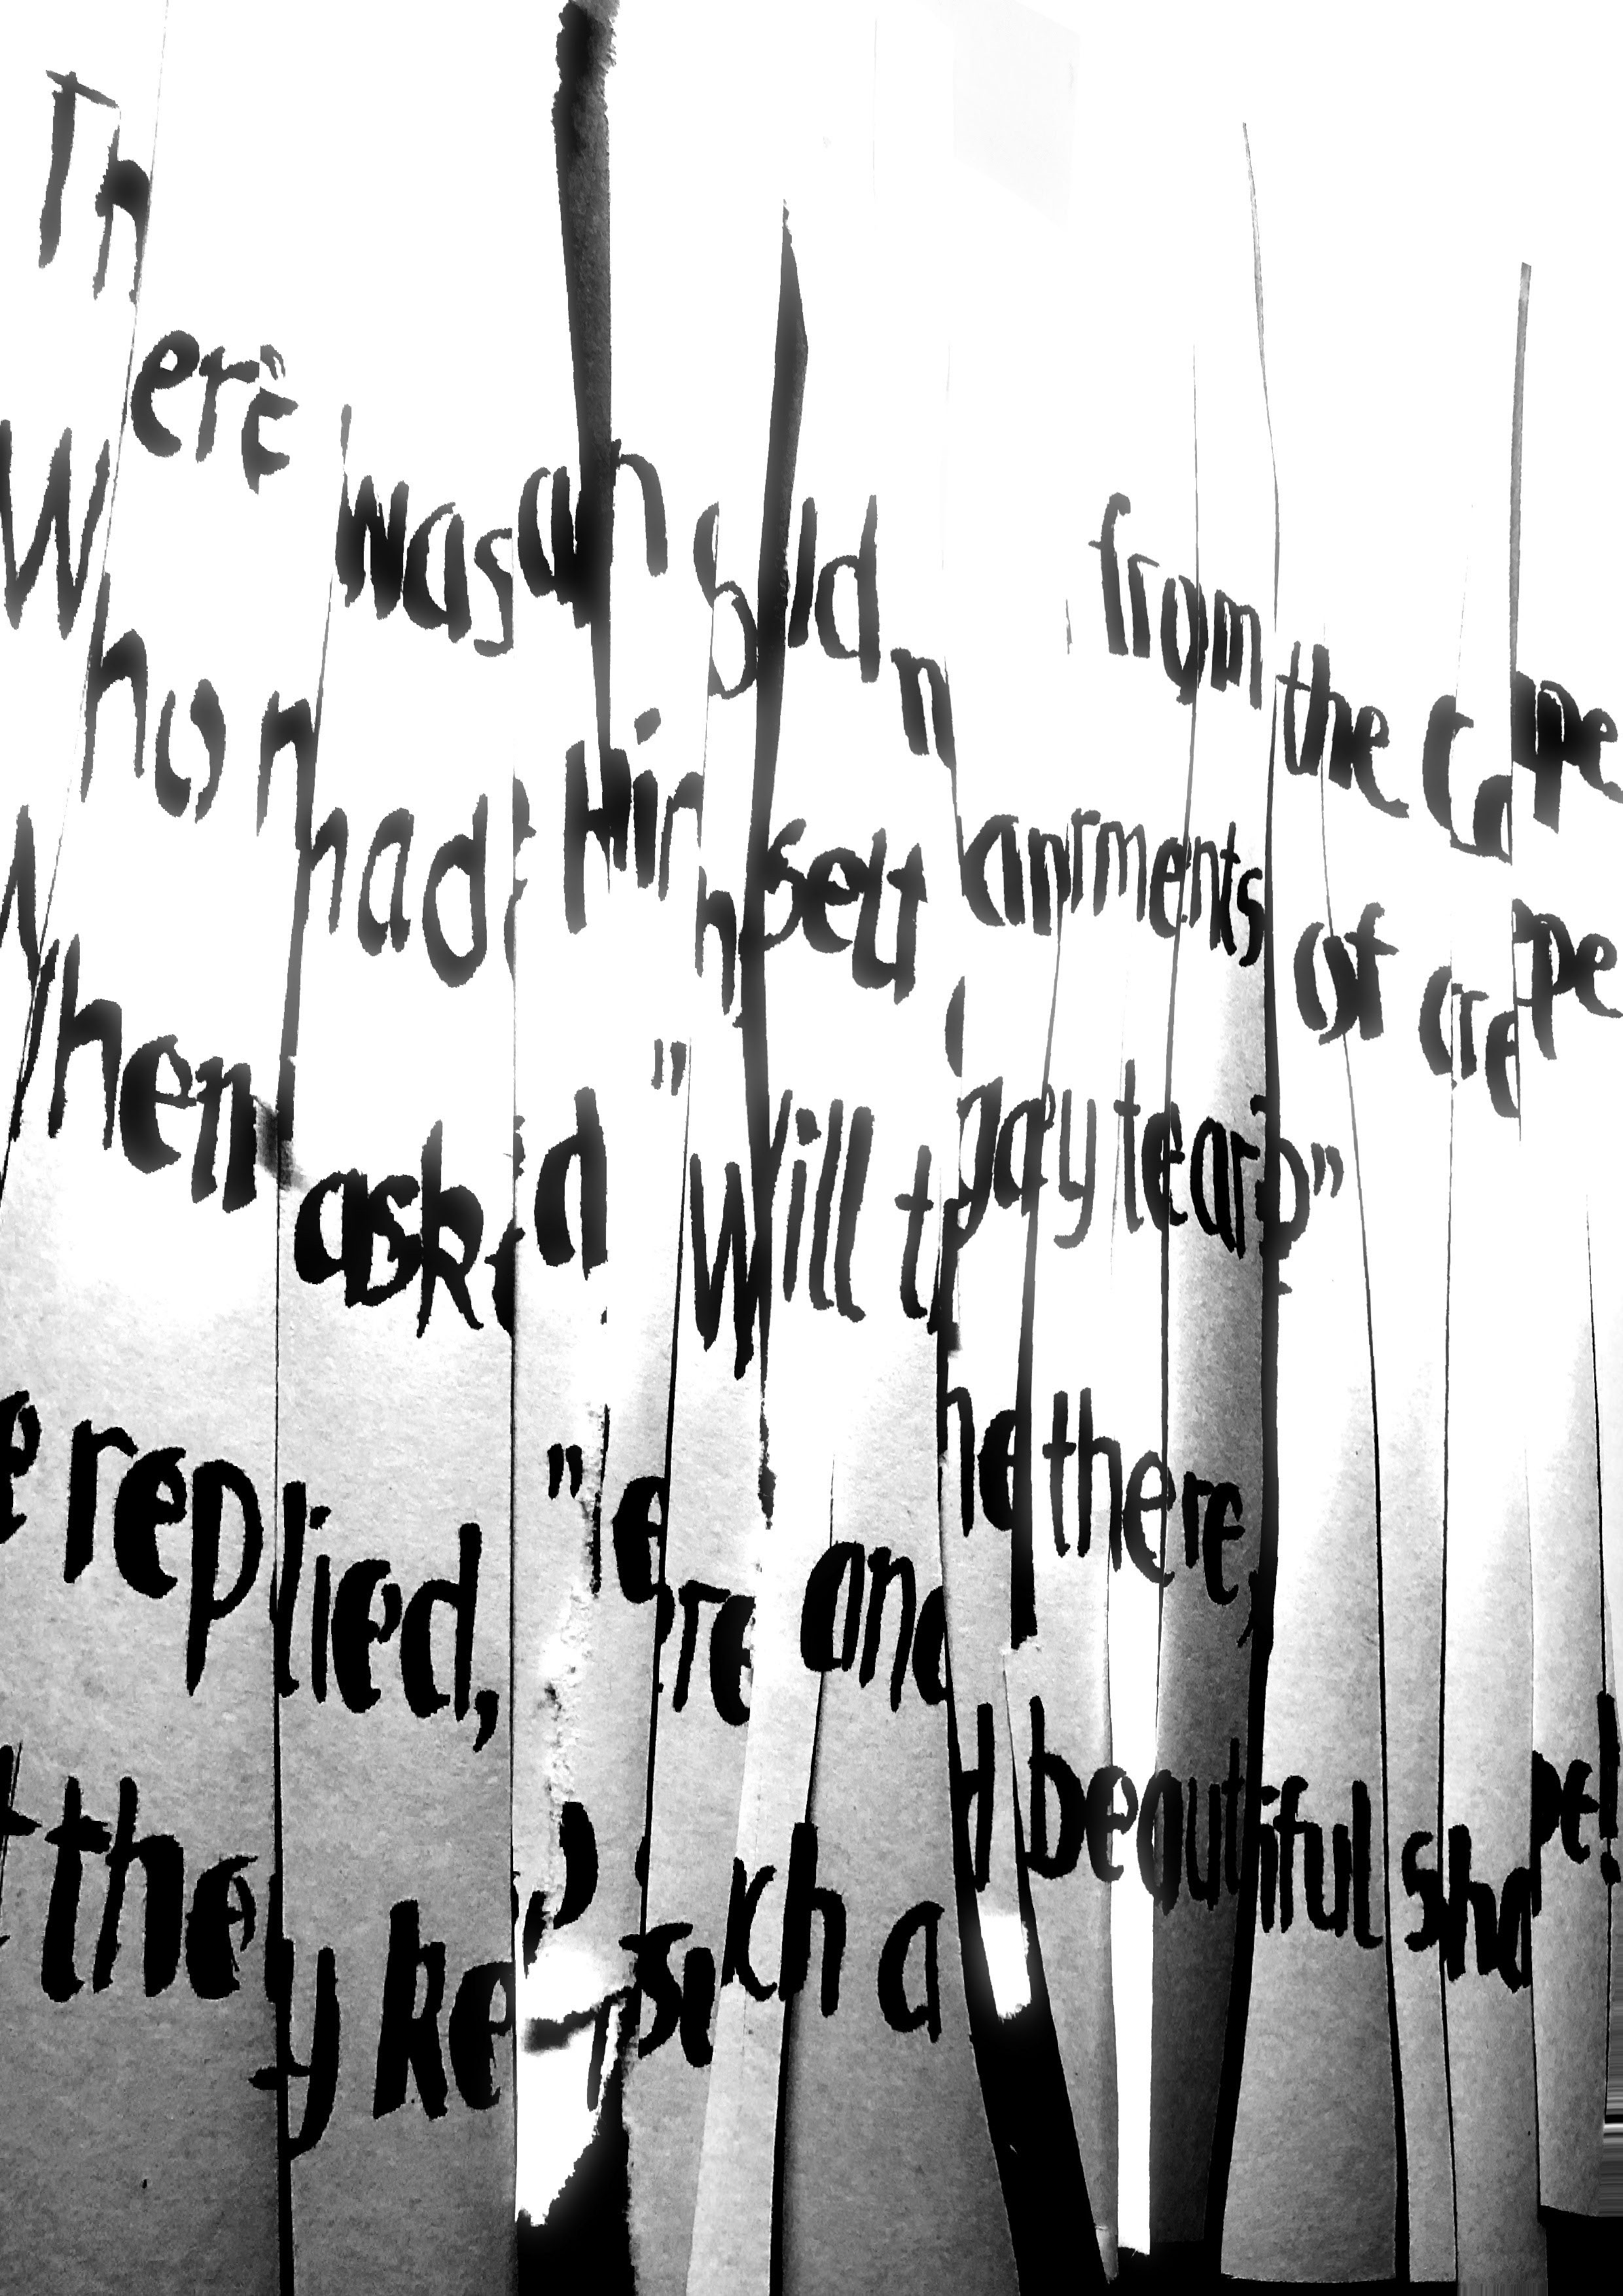 There was an old from the Cape
Who made Himself garments of crepe
When asked "Will they tear?"
replied, "ere and there,
they keep such a beautiful shape!